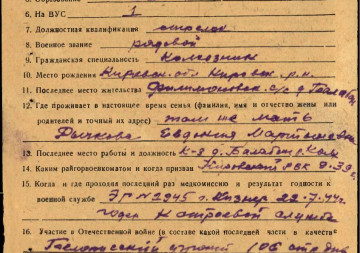 6. На ВУС 1
7. Должностная квалификация стрелок
8. Военное звание рядовой
9. Гражданская специальность Колхозник
10. Место рождения Кировск. обл. Кировск. р-н.
11. Последнее место жительства с/с д.
12. Где проживает в настоящее время семья (фамилия, имя и отчество жены или
родителей и точный их адрес) там же мать
Рычкова Евдокия
13. Последнее место работы и должность К-з
14. Каким райгорвоенкоматом и когда призван Кировский РВК 8.39 г.
15. Когда и где проходил последний раз медкомиссию и результат годности к
военной службе ЭГ № 2945 г. Кизнер 22-7-44 г.
годен к строевой службе
16. Участие в Отечественной войне (в составе какой последней части в качестве
106 стр. див